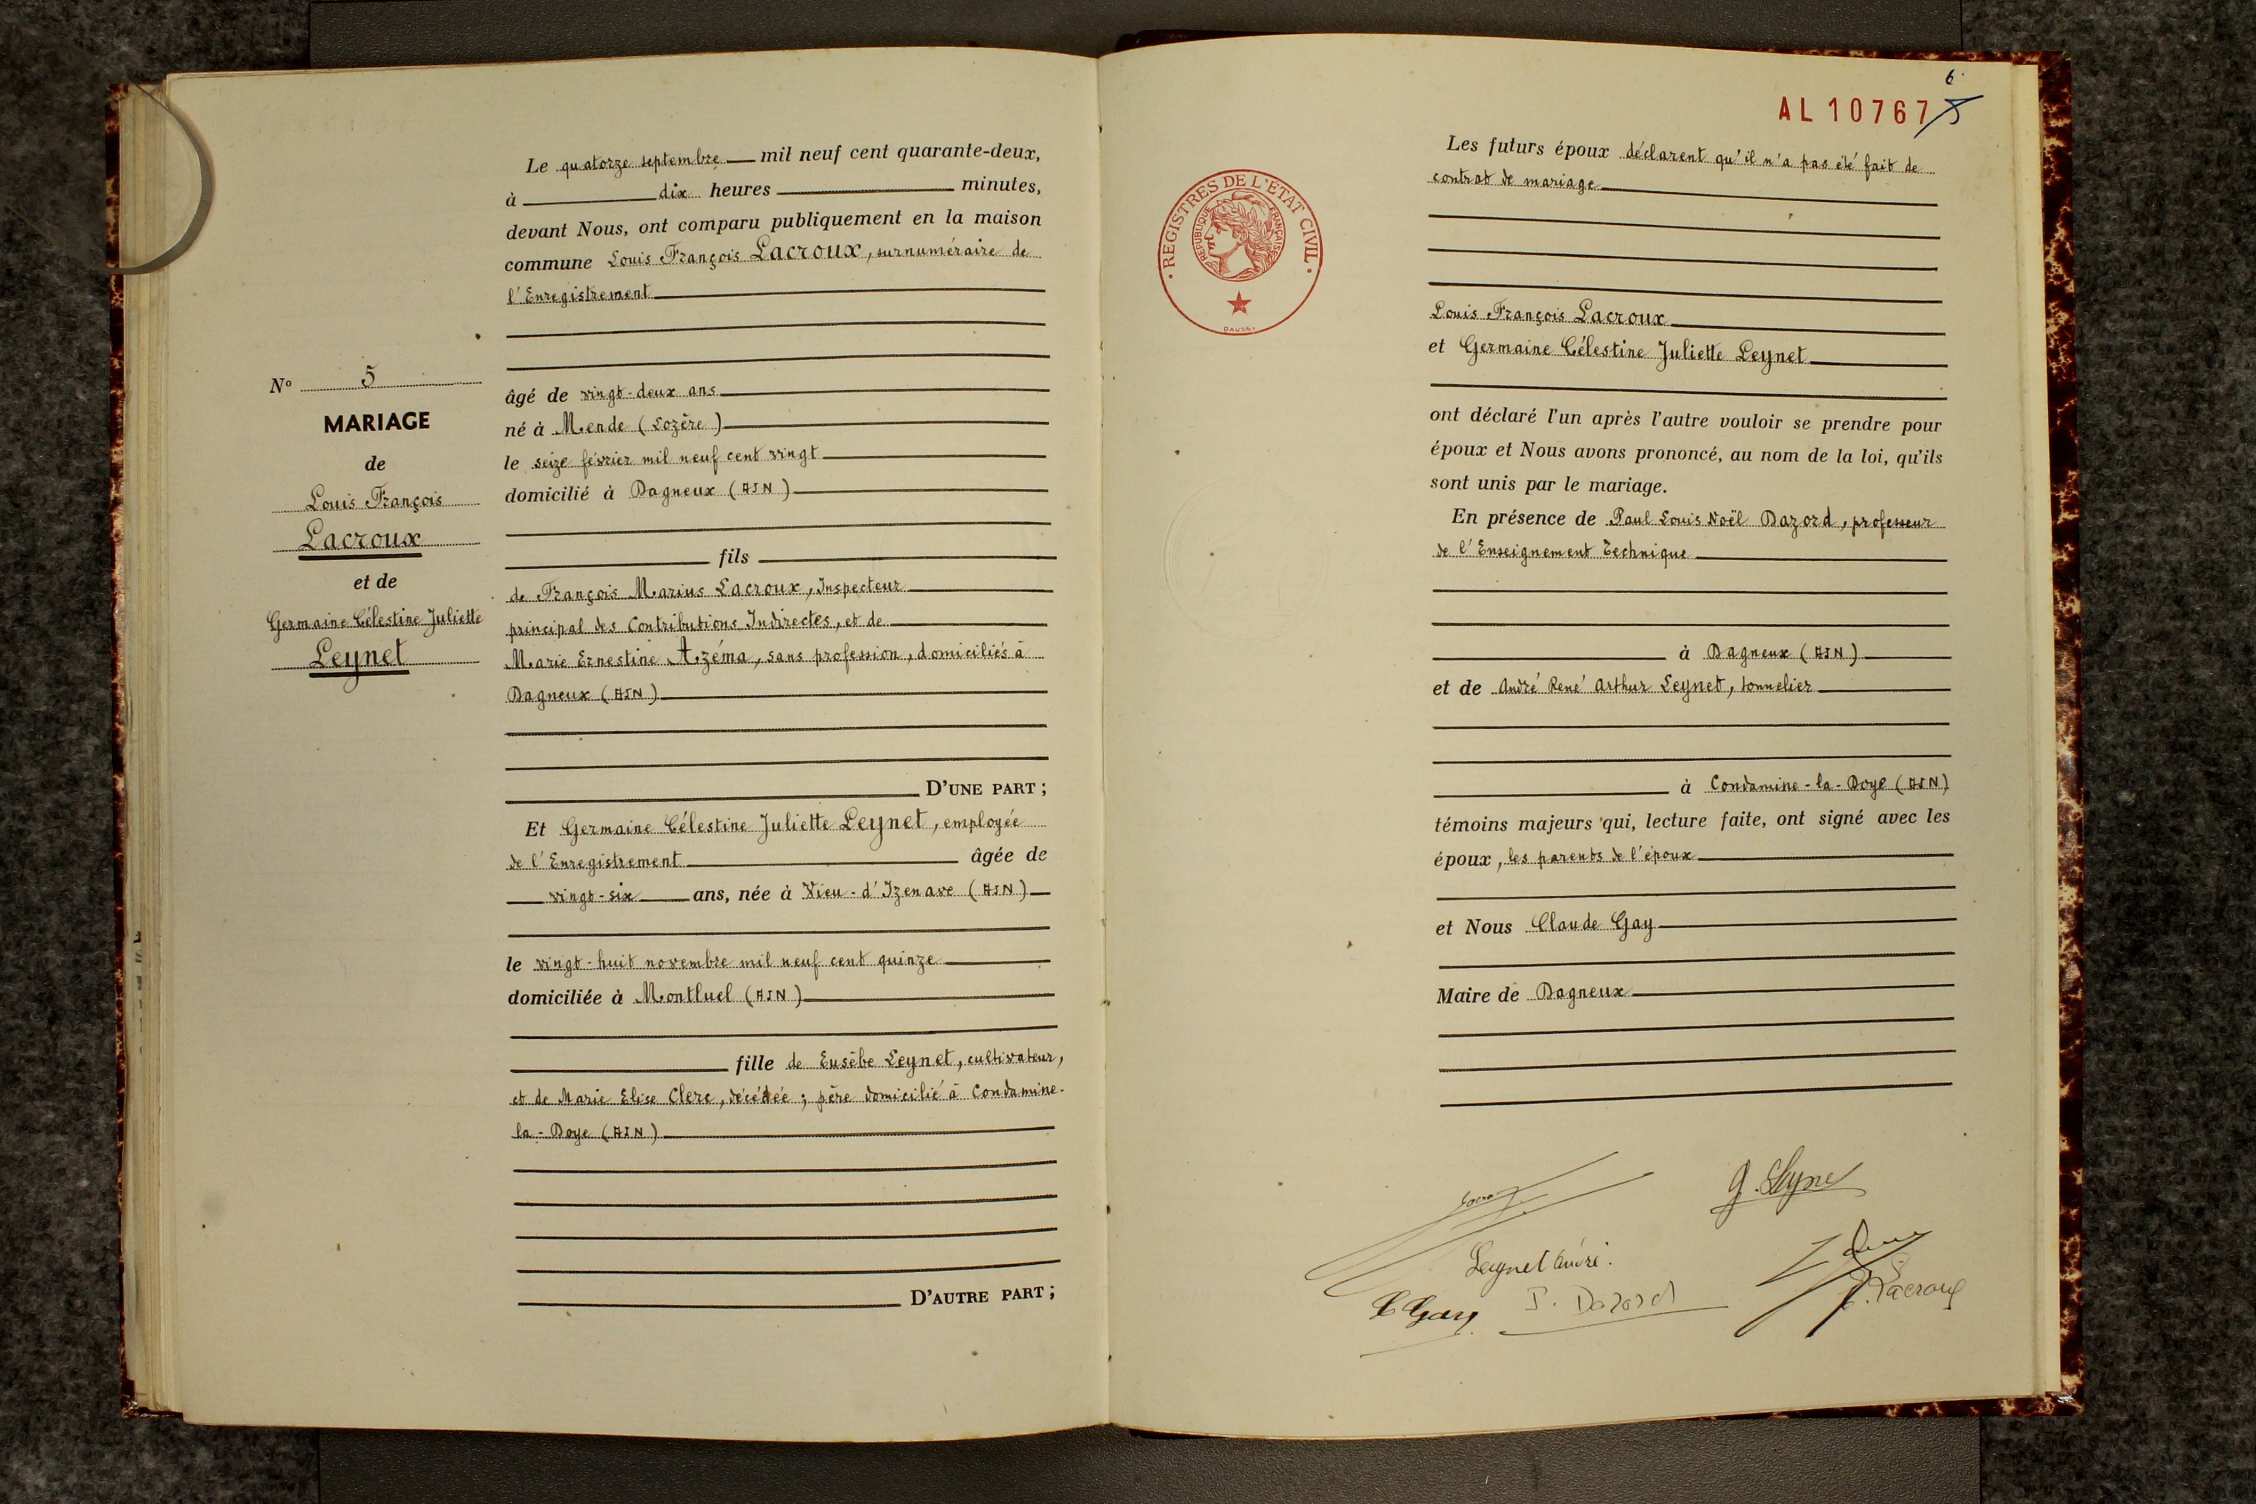 Le quatorze septembre mil neuf cent quarante-deux,
à dix heures minutes,
devant Nous, ont comparu publiquement en la maison
commune Louis François Lacroux, surnuméraire de
l'Enregistrement
âgé de vingt-deux ans
né à Mende (Lozère)
le seize février mil neuf cent vingt
domicilié à Dagneux (AIN)
fils
de François Marius Lacroux, Inspecteur
principal des Contributions Indirectes, et de
Marie Ernestine Azéma, sans profession, domiciliés à
Dagneux (AIN)
D'UNE PART ;
Et Germaine Célestine Juliette Leynet, employée
de l'Enregistrement âgée de
vingt-six ans, née à Vieu-d'Izenave (AIN)
le vingt-huit novembre mil neuf cent quinze
domiciliée à Montluel (AIN)
fille de Eusèbe Leynet, cultivateur,
et de Marie Elise Clerc, décédée ; père domicilié à Condamine-
la-Doye (AIN)
D'AUTRE PART ;
N° 5
MARIAGE
de
Louis François
Lacroux
et de
Germaine Célestine Juliette
Leynet
6
AL 10767 5
REGISTRES DE L'ETAT CIVIL
REPUBLIQUE FRANÇAISE
Les futurs époux déclarent qu'il n'a pas été fait de
contrat de mariage
Louis François Lacroux
et Germaine Célestine Juliette Leynet
ont déclaré l'un après l'autre vouloir se prendre pour
époux et Nous avons prononcé, au nom de la loi, qu'ils
sont unis par le mariage.
En présence de Paul Louis Noël Dazord, professeur
de l'Enseignement Technique
à Dagneux (AIN)
et de André René Arthur Leynet, tonnelier
à Condamine-la-Doye (AIN)
témoins majeurs qui, lecture faite, ont signé avec les
époux, les parents de l'époux
et Nous Claude Gay
Maire de Dagneux
Leynet André.
C Gay
P. Dazord
Lacroux